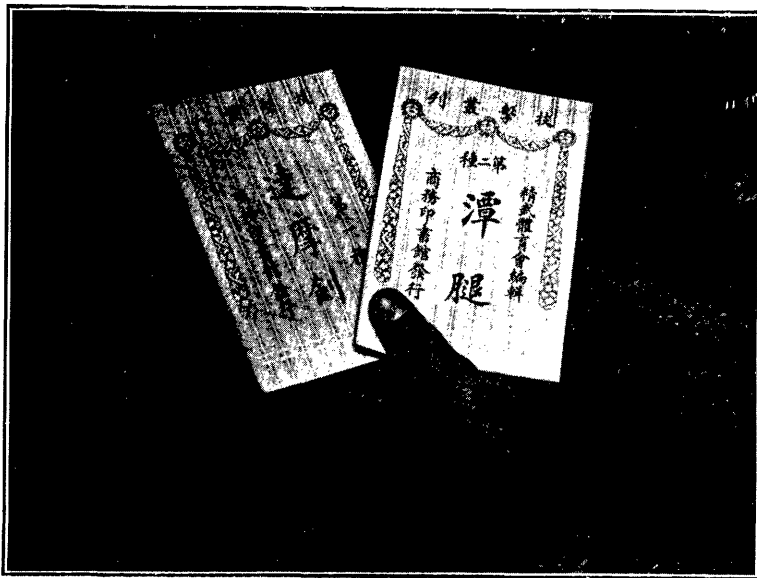 技擊叢刊
第二種
精武體育會編輯
潭腿
商務印書館發行
第一種
達摩劍